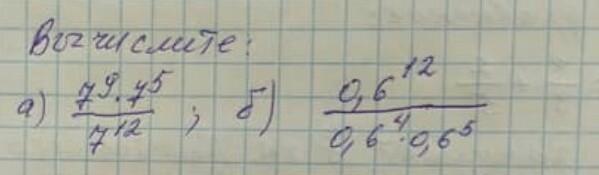 Вычислите:
а) (7⁹·7⁵)/7¹² ; б) 0,6¹²/(0,6⁴·0,6⁵)